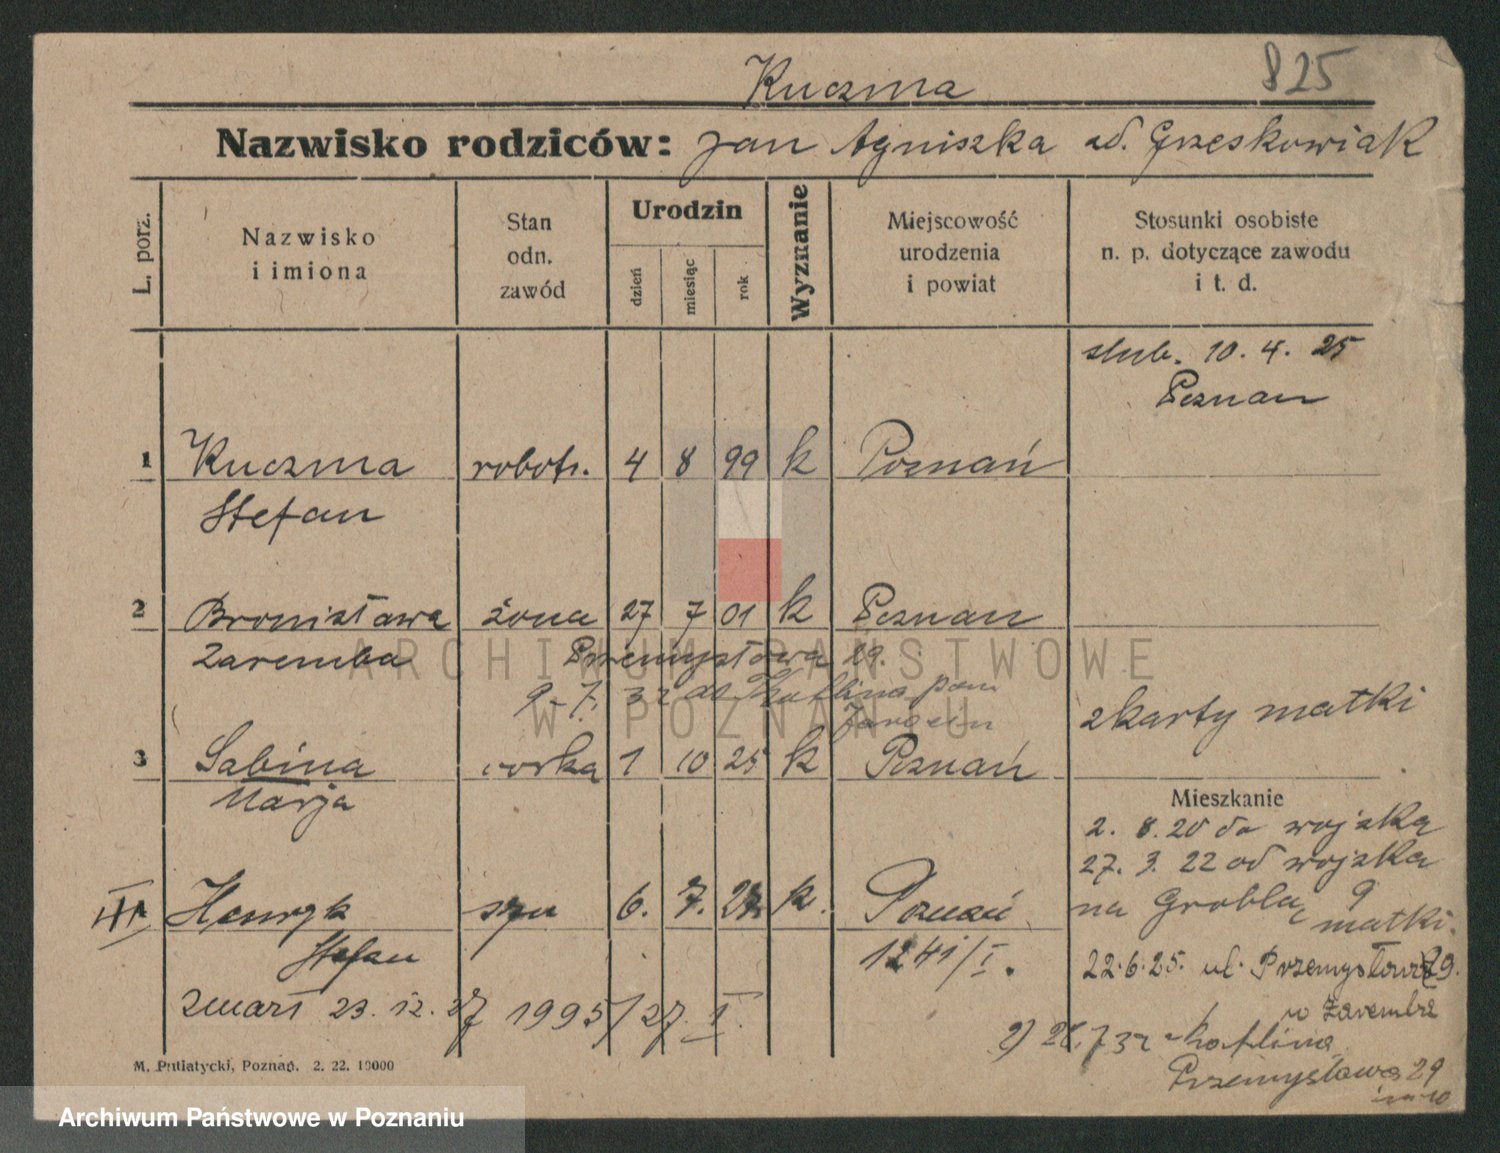 825
Kuczma
Nazwisko rodziców: Jan Agniszka zd. Grzeskowiak
L. porz.
Nazwisko i imiona
Stan odn. zawód
Urodzin
dzień
miesiąc
rok
Wyznanie
Miejscowość urodzenia i powiat
Stosunki osobiste n. p. dotyczące zawodu i t. d.
slub. 10. 4. 25
Poznan
1 Kuczma robotn. 4 8 99 k Poznań
Stefan
2 Bronisława żona 27 7 01 k Poznan
Zaremba Przemysłowa 29.
9-7. 32 do Kotlina pow
Jarocin
z karty matki
3 Sabina corka 1 10 25 k Poznań
Marja
Mieszkanie
2. 8. 20 do wojska
27. 3. 22 od wojska
na Groblą 9
matki.
III Henryk syn 6. 7. 27. k. Poznań
Stefan 1241/I.
22.6.25. ul. Przemysłowa 29.
zmarł 23. 12. 27 1995/27 I.
w Zaremba
2) 28.7 32 Kotlina
Przemysłowa 29
M. Putiatycki, Poznań. 2. 22. 10000
ARCHIWUM PAŃSTWOWE
W POZNANIU
Archiwum Państwowe w Poznaniu